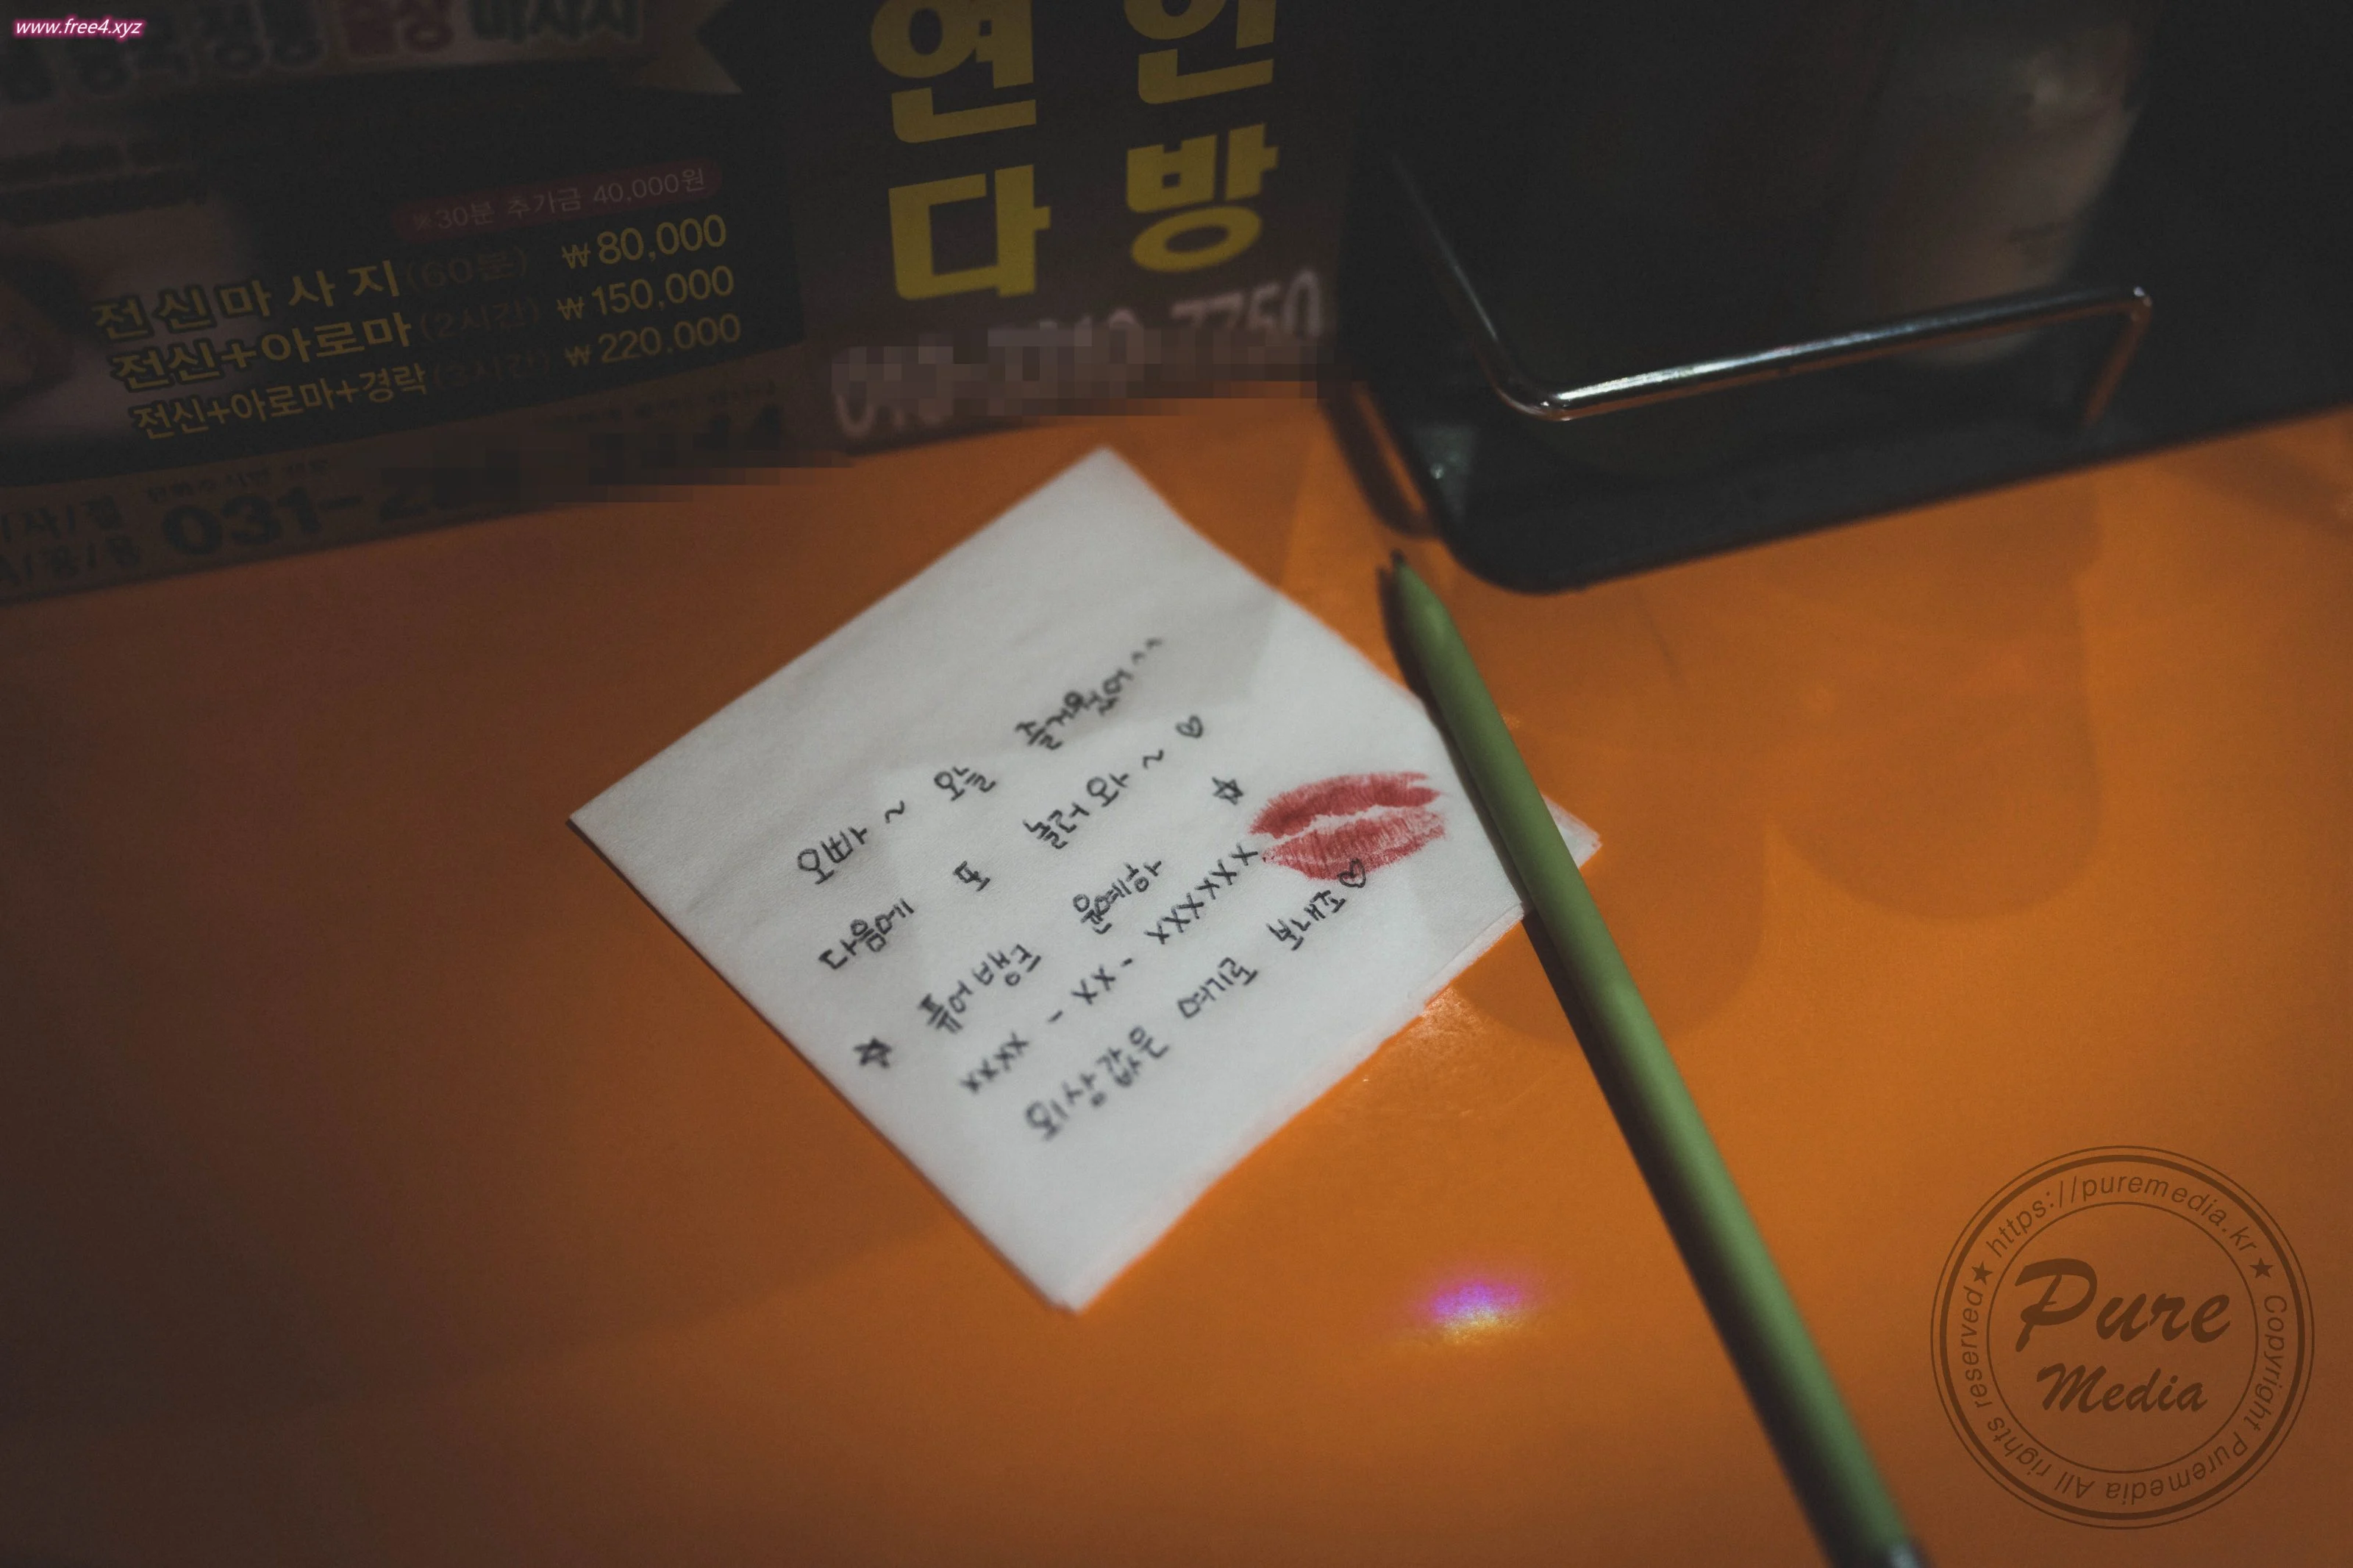 www.free4.xyz
출장 마사지
※30분 추가금 40,000원
전신마사지(60분) ₩80,000
전신+아로마(2시간) ₩150,000
전신+아로마+경락 ₩220,000
031-2
연인
다방
오빠~ 오늘 즐거웠어^^
다음에 또 놀러와~♡
☆ 퓨어뱅크 윤예하 ☆
xxxx - xx - xxxxxxx
외상값은 여기로 보내죠♡
https://puremedia.kr ★ Copyright Puremedia All rights reserved ★
Pure
Media